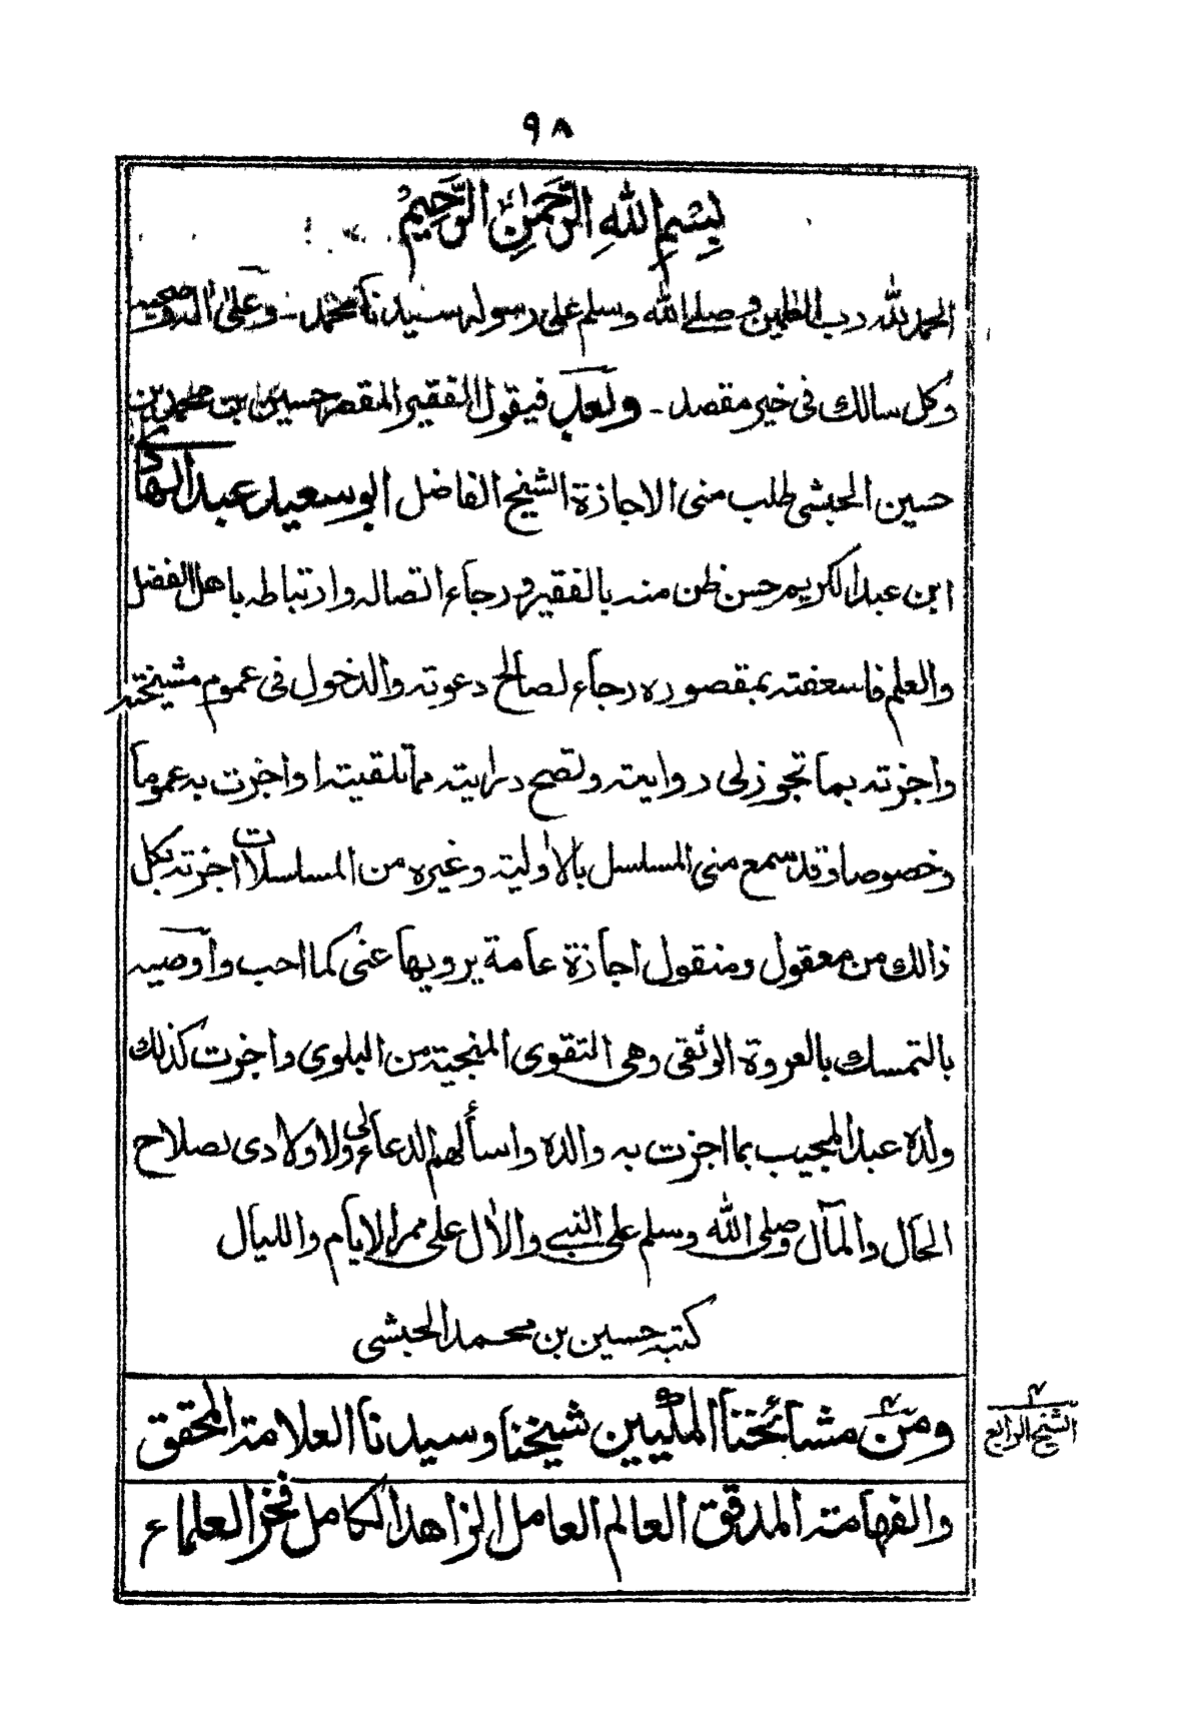 ٩٨
بِسْمِ اللهِ الرَّحْمٰنِ الرَّحِيمُ
الحمد لله رب العلمين و صلى الله وسلم على رسوله سيدنا محمد ـ وعلى اله وصحبه
وكل سالك فى خير مقصد ـ وبعد فيقول الفقير المقصر حسين بن محمد بن
حسين الحبشى طلب منى الاجازة الشيخ الفاضل ابو سعيد عبد الهادى
ابن عبد الكريم حسن ظن منه بالفقير و رجاء اتصاله وارتباطه باهل الفضل
والعلم فاسعفته بمقصوره رجاء لصالح دعوته والدخول فى عموم مشيخته
واجزته بما تجوز لى روايته وتصح درايته مما تلقيته او اجزت به عموما
وخصوصا وقد سمع منى المسلسل بالاولية وغيره من المسلسلات اجزته بكل
ذالك من معقول ومنقول اجازة عامة يرويها عنى كما احب واوصيه
بالتمسك بالعروة الوثقى وهى التقوى المنجية من البلوى واجزت كذلك
ولده عبد المجيب بما اجزت به والده واسألهم الدعاء لى ولاولادى بصلاح
الحال والمآل وصلى الله وسلم على النبى والآل على ممر الايام والليال
كتبه حسين بن محمد الحبشى
ومن مشائخنا المكيين شيخنا وسيدنا العلامة المحقق
والفهامة المدقق العالم العامل الزاهد الكامل فخر العلماء
٤
الشيخ الرابع